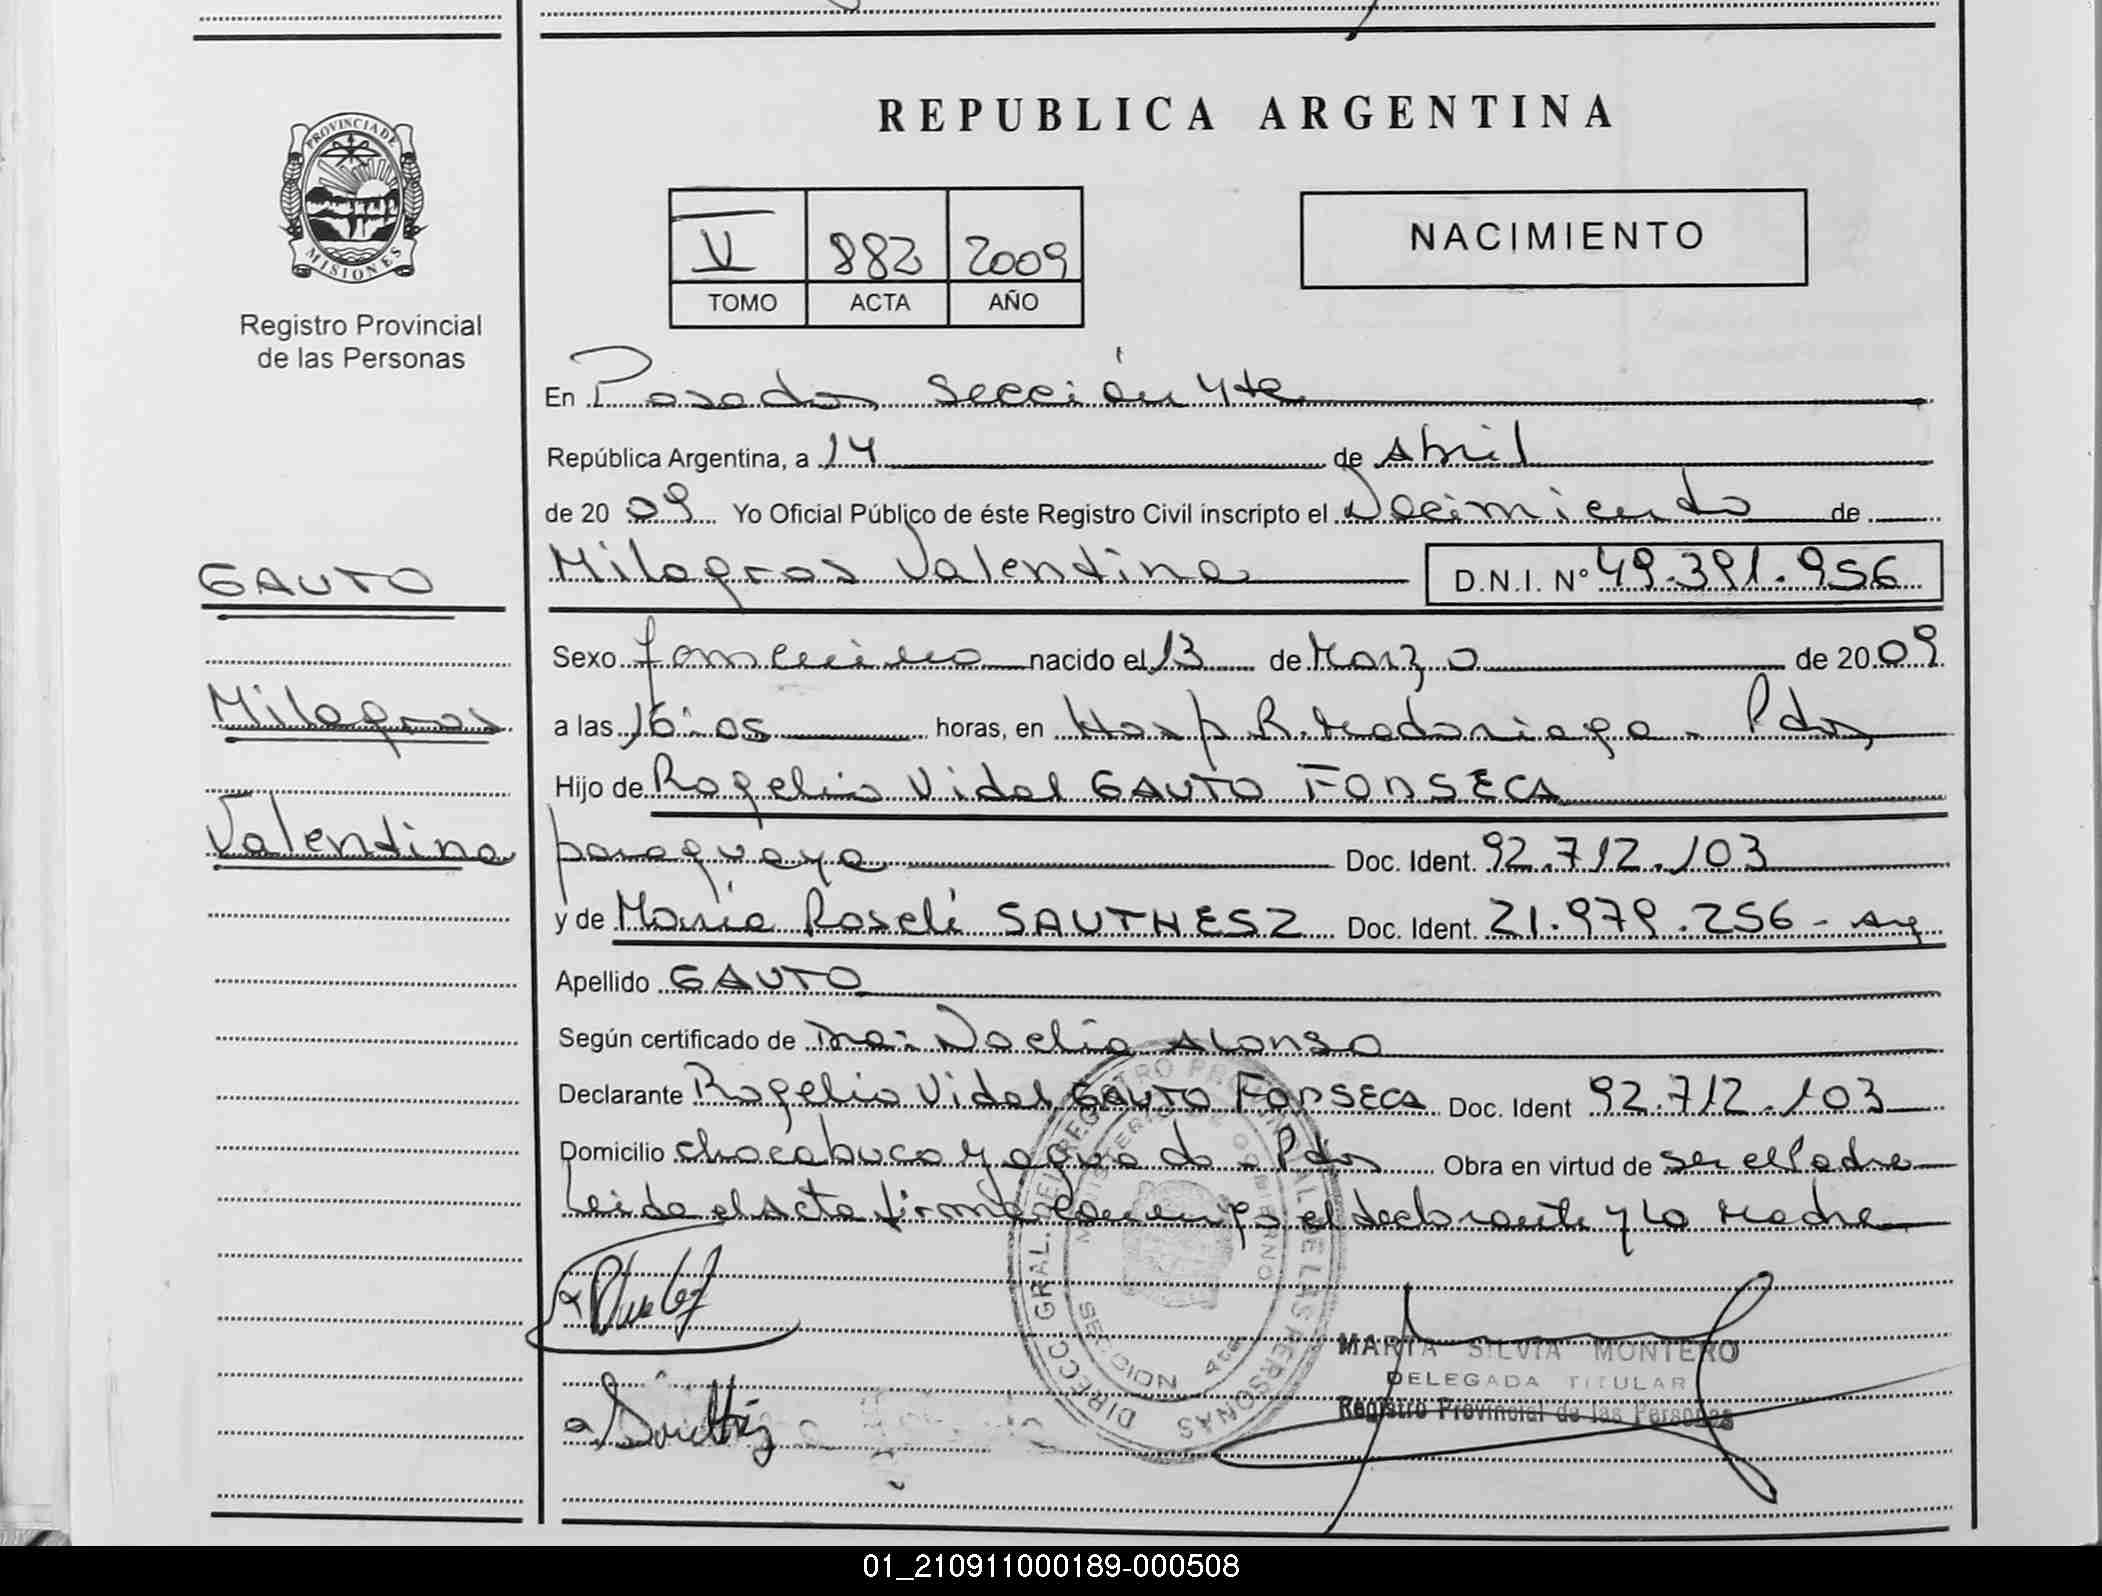 REPUBLICA ARGENTINA
PROVINCIA DE
MISIONES
Registro Provincial
de las Personas
V 882 2009
TOMO ACTA AÑO
NACIMIENTO
En Posadas Sección 4ta
República Argentina, a 14 de Abril
de 20 09 Yo Oficial Público de éste Registro Civil inscripto el Nacimiento de
Milagros Valentina D.N.I. Nº 49.391.956
GAUTO
Milagros
Valentina
Sexo femenino nacido el 13 de Marzo de 20 09
a las 16:05 horas, en Hosp R. Madariaga - Pdas
Hijo de Rogelio Vidal GAUTO FONSECA
paraguaya Doc. Ident. 92.712.103
y de María Roseli SAUTHESZ Doc. Ident. 21.979.256 - Arg
Apellido GAUTO
Según certificado de Dra: Noelia Alonso
Declarante Rogelio Vidal GAUTO FONSECA Doc. Ident 92.712.103
Domicilio chacabuco y aguado - Pdas Obra en virtud de ser el Padre
Leida el Acta firma el declarante y la Madre
DIRECC. GRAL. DEL REGISTRO PROVINCIAL DE LAS PERSONAS
MINISTERIO DE GOBIERNO
4ta
MARTA SILVIA MONTERO
DELEGADA TITULAR
Registro Provincial de las Personas
01_210911000189-000508